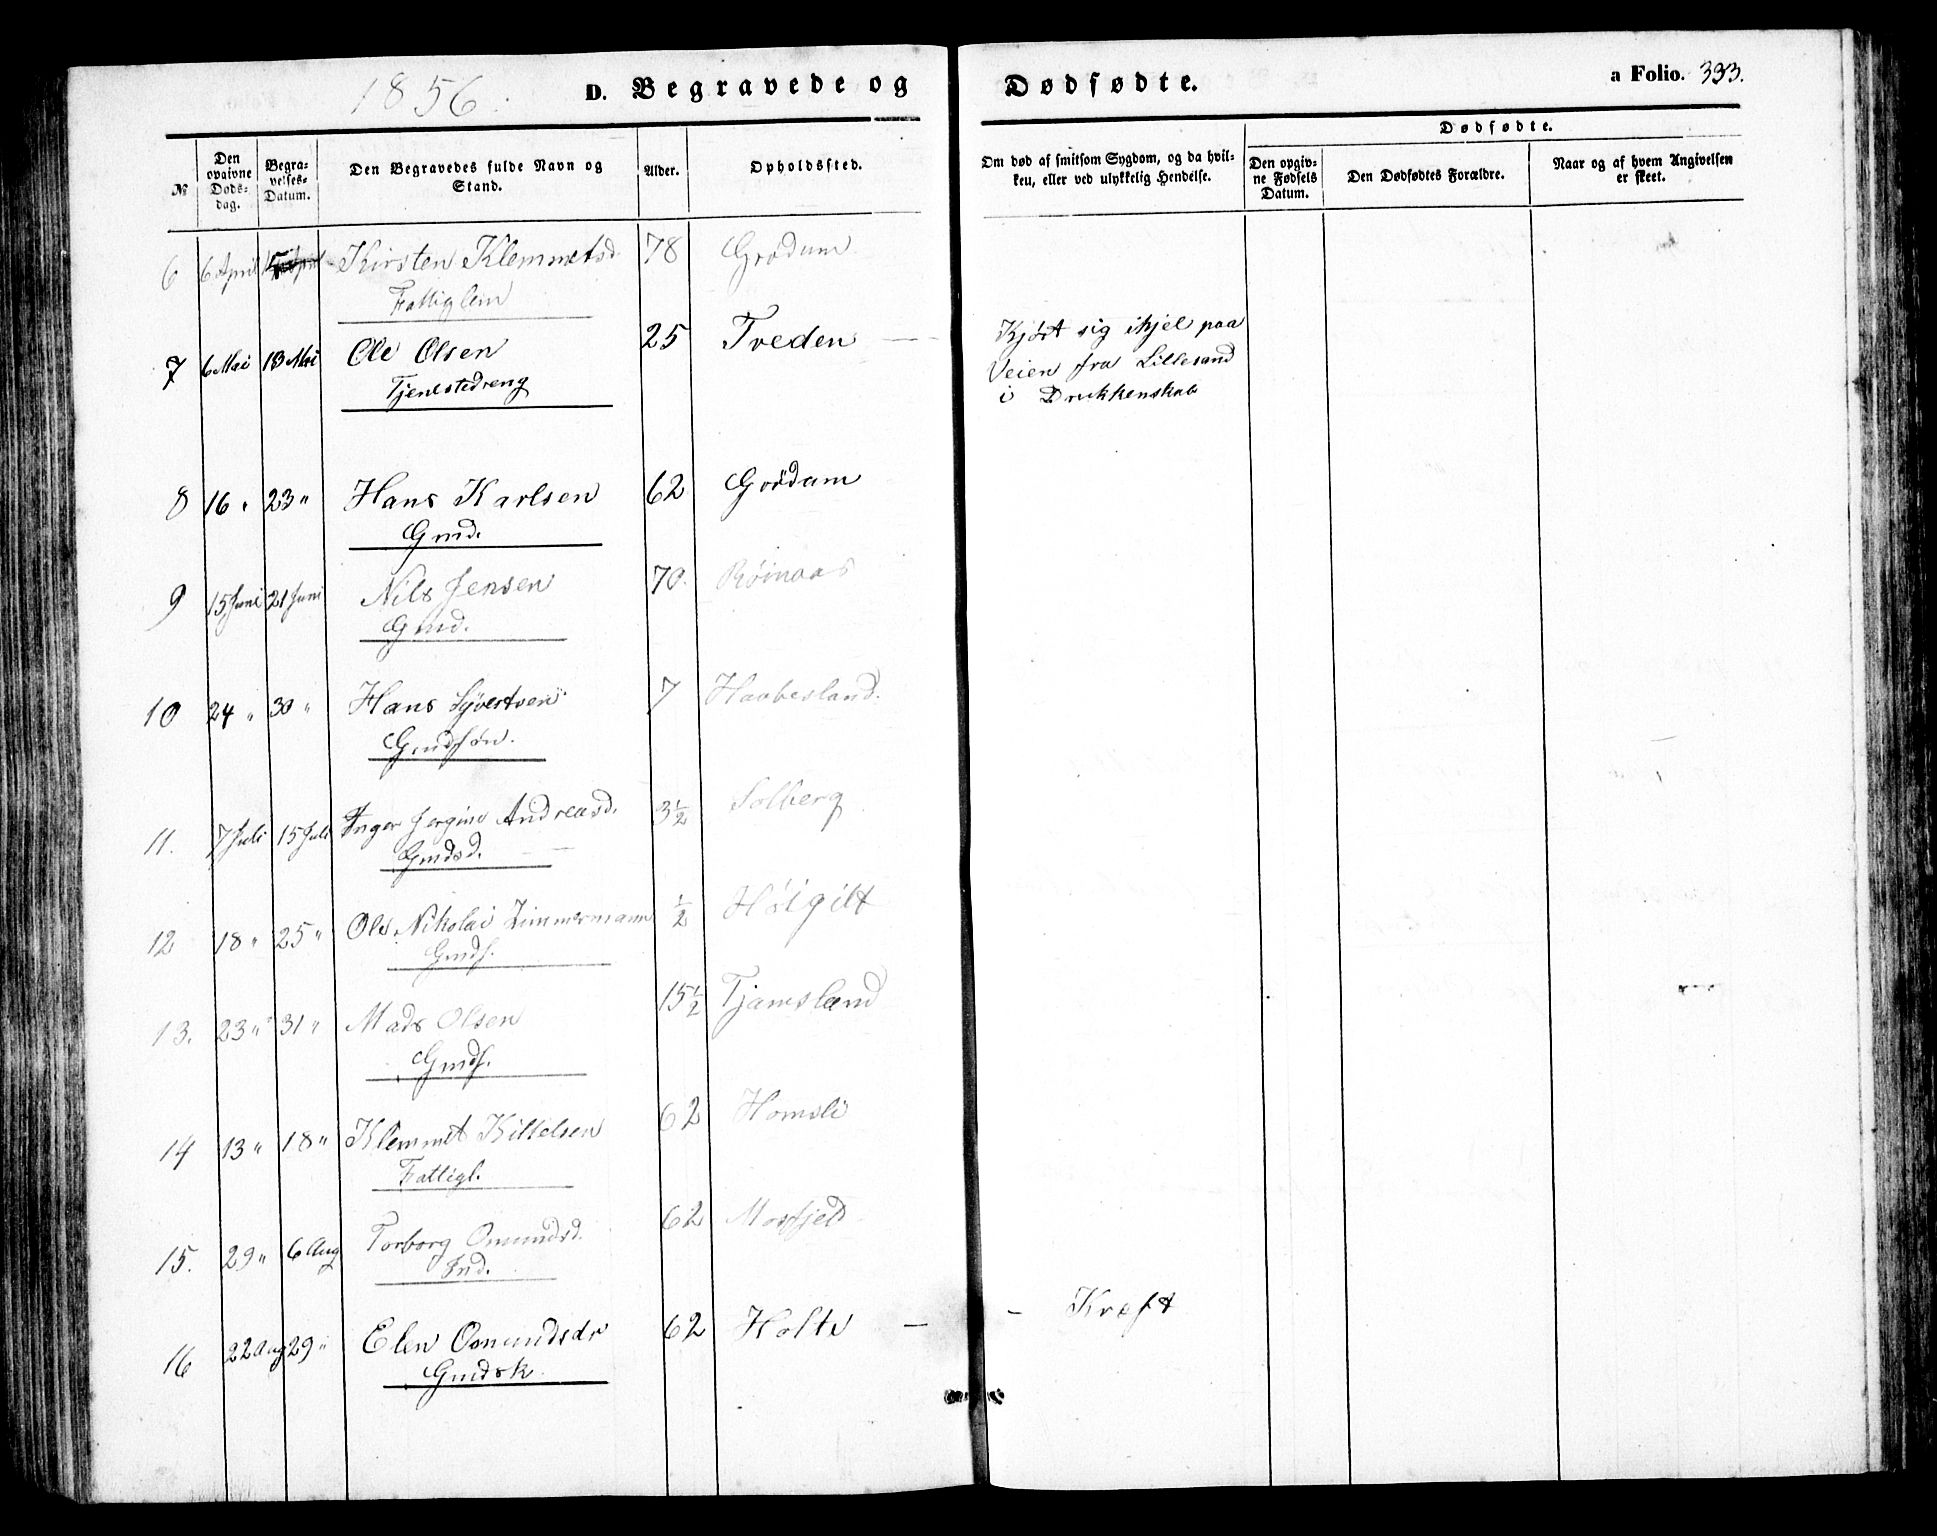 1856. D. Begravede og Dødfødte. a Folio. 333.
№
Den opgivne Døds-dag.
Begra-velses-Datum.
Den Begravedes fulde Navn og Stand.
Alder.
Opholdssted.
Om død af smitsom Sygdom, og da hvil-ken, eller ved ulykkelig Hendelse.
Dødfødte.
Den opgiv-ne Fødsels Datum.
Den Dødfødtes Forældre.
Naar og af hvem Angivelsen er skeet.
6 6 April Kirsten Klemmetsd. 78 Grødum
Fattiglem
7 6 Mai 13 Mai Ole Olsen 25 Tveden — Kjørt sig ihjel paa
Tjenestedreng Veien fra Lillesand
i Drukkenskab
8 16 " 23 " Hans Karlsen 62 Grødum
Gmd.
9 15 Juni 21 Juni Nils Jensen 70. Røinaas
Gmd.
10 24 " 30 " Hans Syvertsen 7 Haabesland.
Gmdsøn.
11. 7 Juli 15 Juli Inger Jørgine Andreasd. 3½ Solberg
Gmdsd.
12 18 " 25 " Ole Nikolai Zimmermann ½ Høigilt
Gmds.
13. 23 " 31 " Mads Olsen 15½ Tjamsland
Gmds.
14 13 " 18 " Klemmet Kittelsen 62 Homsli
Fattigl.
15. 29 " 6 Aug Torborg Omundsd. 62 Mosfjeld
Ind.
16 22 Aug 29 " Elen Omundsdr 62 Holte — - Kræft
Gmdsk